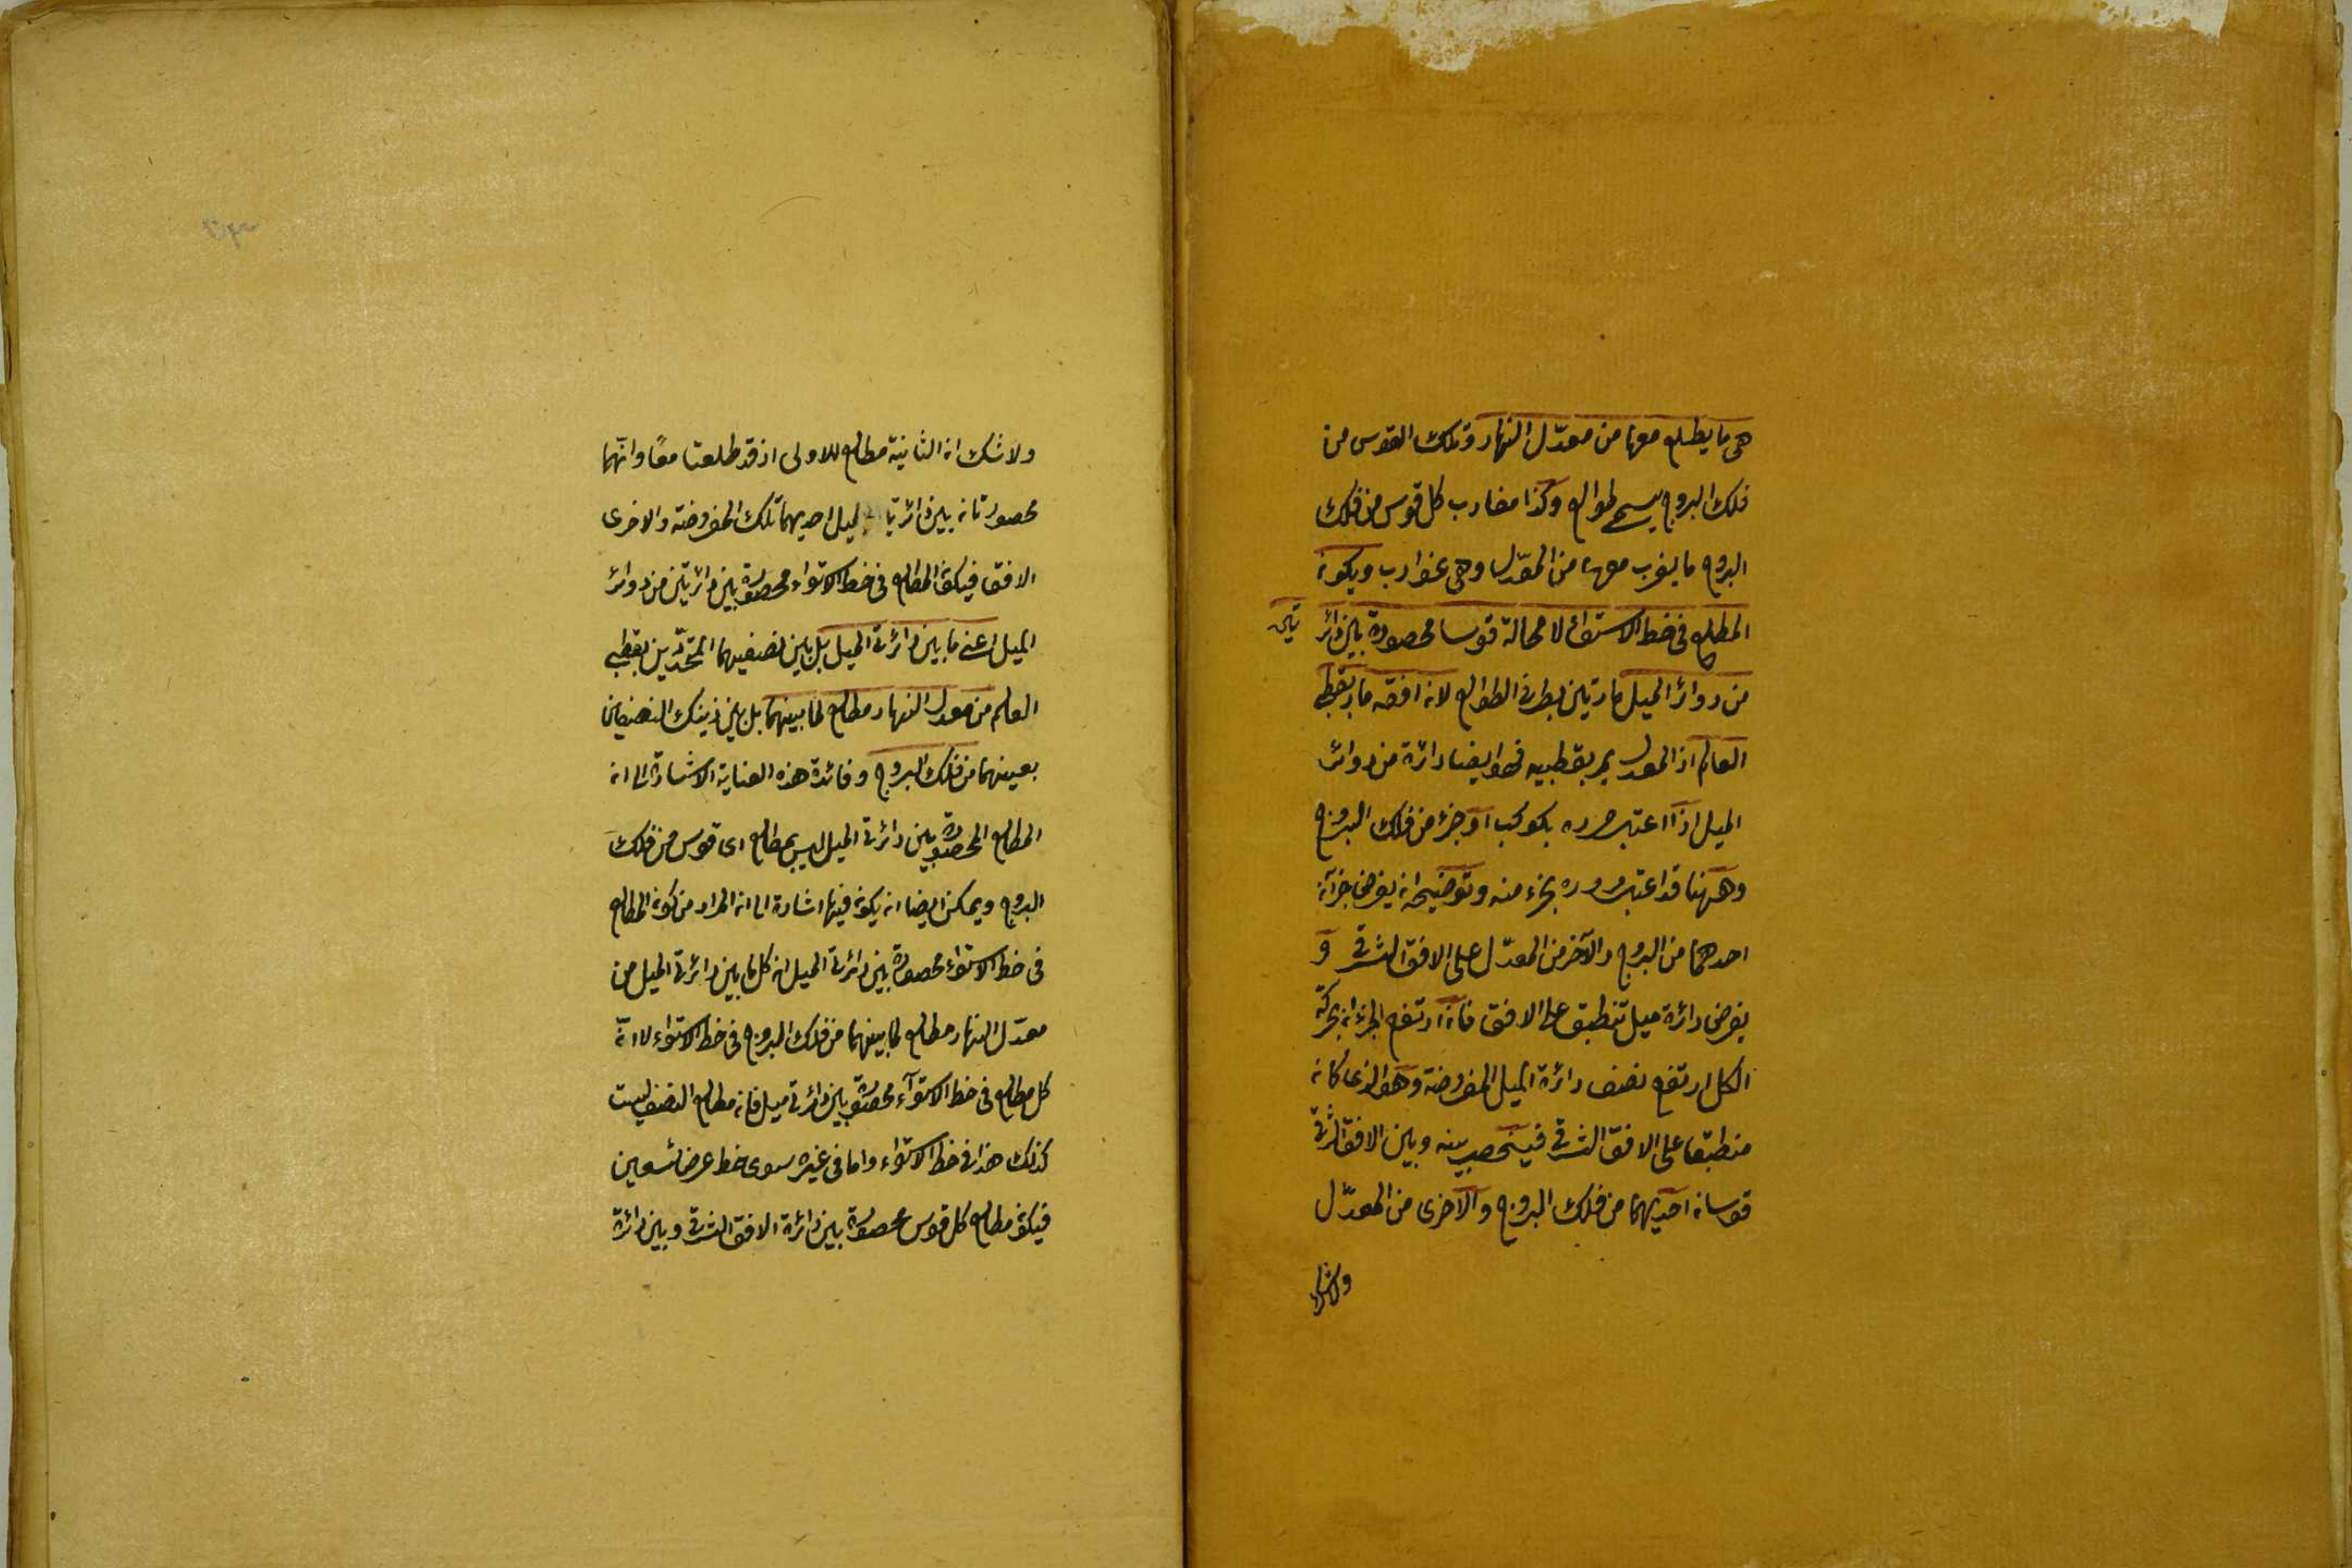 هى ما يطلع معها من معدّل النهار وتلك القوس من
فلك البروج يسمى طوالع وكذا مغارب كل قوس من فلك
البروج ما يغرب معها من المعدّل وهى غوارب ويكون
المطلع فى خط الاستواء لا محالة قوسا محصورة بين دائر تين
من دوائر الميل مارتين بطرفى الطوالع لان افقه مار بقطبى
العالم اذ المعدل يمر بقطبيه فهو ايضا دائرة من دوائر
الميل اذا اعتبر مروره بكوكب او جزء من فلك البروج
وههنا قد اعتبر مروره بجزء منه وتوضيحه ان يفرض جزآن
احدهما من البروج والآخر من المعدّل على الافق الشرقى و
يفرض دائرة ميل تنطبق على الافق فاذا ارتفع الجزءان بحركة
الكل ارتفع نصف دائرة الميل المفروضة وهو الذى كان
منطبقا على الافق الشرقى فينحصر بينه وبين الافق الشرقى
قوسان احديهما من فلك البروج والاخرى من المعدّل
ولا شك
ولا شك ان الثانية مطالع للاولى اذ قد طلعتا معًا وانّهما
محصورتان بين دائرتى الميل احديهما تلك المفروضة والاخرى
الافق فيكون المطالع فى خط الاستواء محصورة بين دائرتين من دوائر
الميل اعنى ما بين دائرتى الميل بل بين نصفيهما المتحدّين بقطبى
العالم من معدل النهار مطالع لما بينهما بل بين ذينك النصفين
بعينهما من فلك البروج وفائدة هذه العناية الاشارة الى ان
المطالع المحصورة بين دائرتى الميل ليس بمطالع اى قوس من فلك
البروج ويمكن ايضا ان يكون فيها اشارة الى ان المراد من كون المطالع
فى خط الاستواء محصورة بين دائرتى الميل ان كل ما بين دائرتى الميل من
معدّل النهار مطالع لما بينهما من فلك البروج فى خط الاستواء لا انّ
كل مطالع فى خط الاستوآء محصورة بين دائرتى ميل فان مطالع النصف ليست
كذلك هذا فى خط الاستواء واما فى غيره سوى خط عرض تسعين
فيكون مطالع كل قوس محصورة بين دائرة الافق الشرقى وبين دائرة